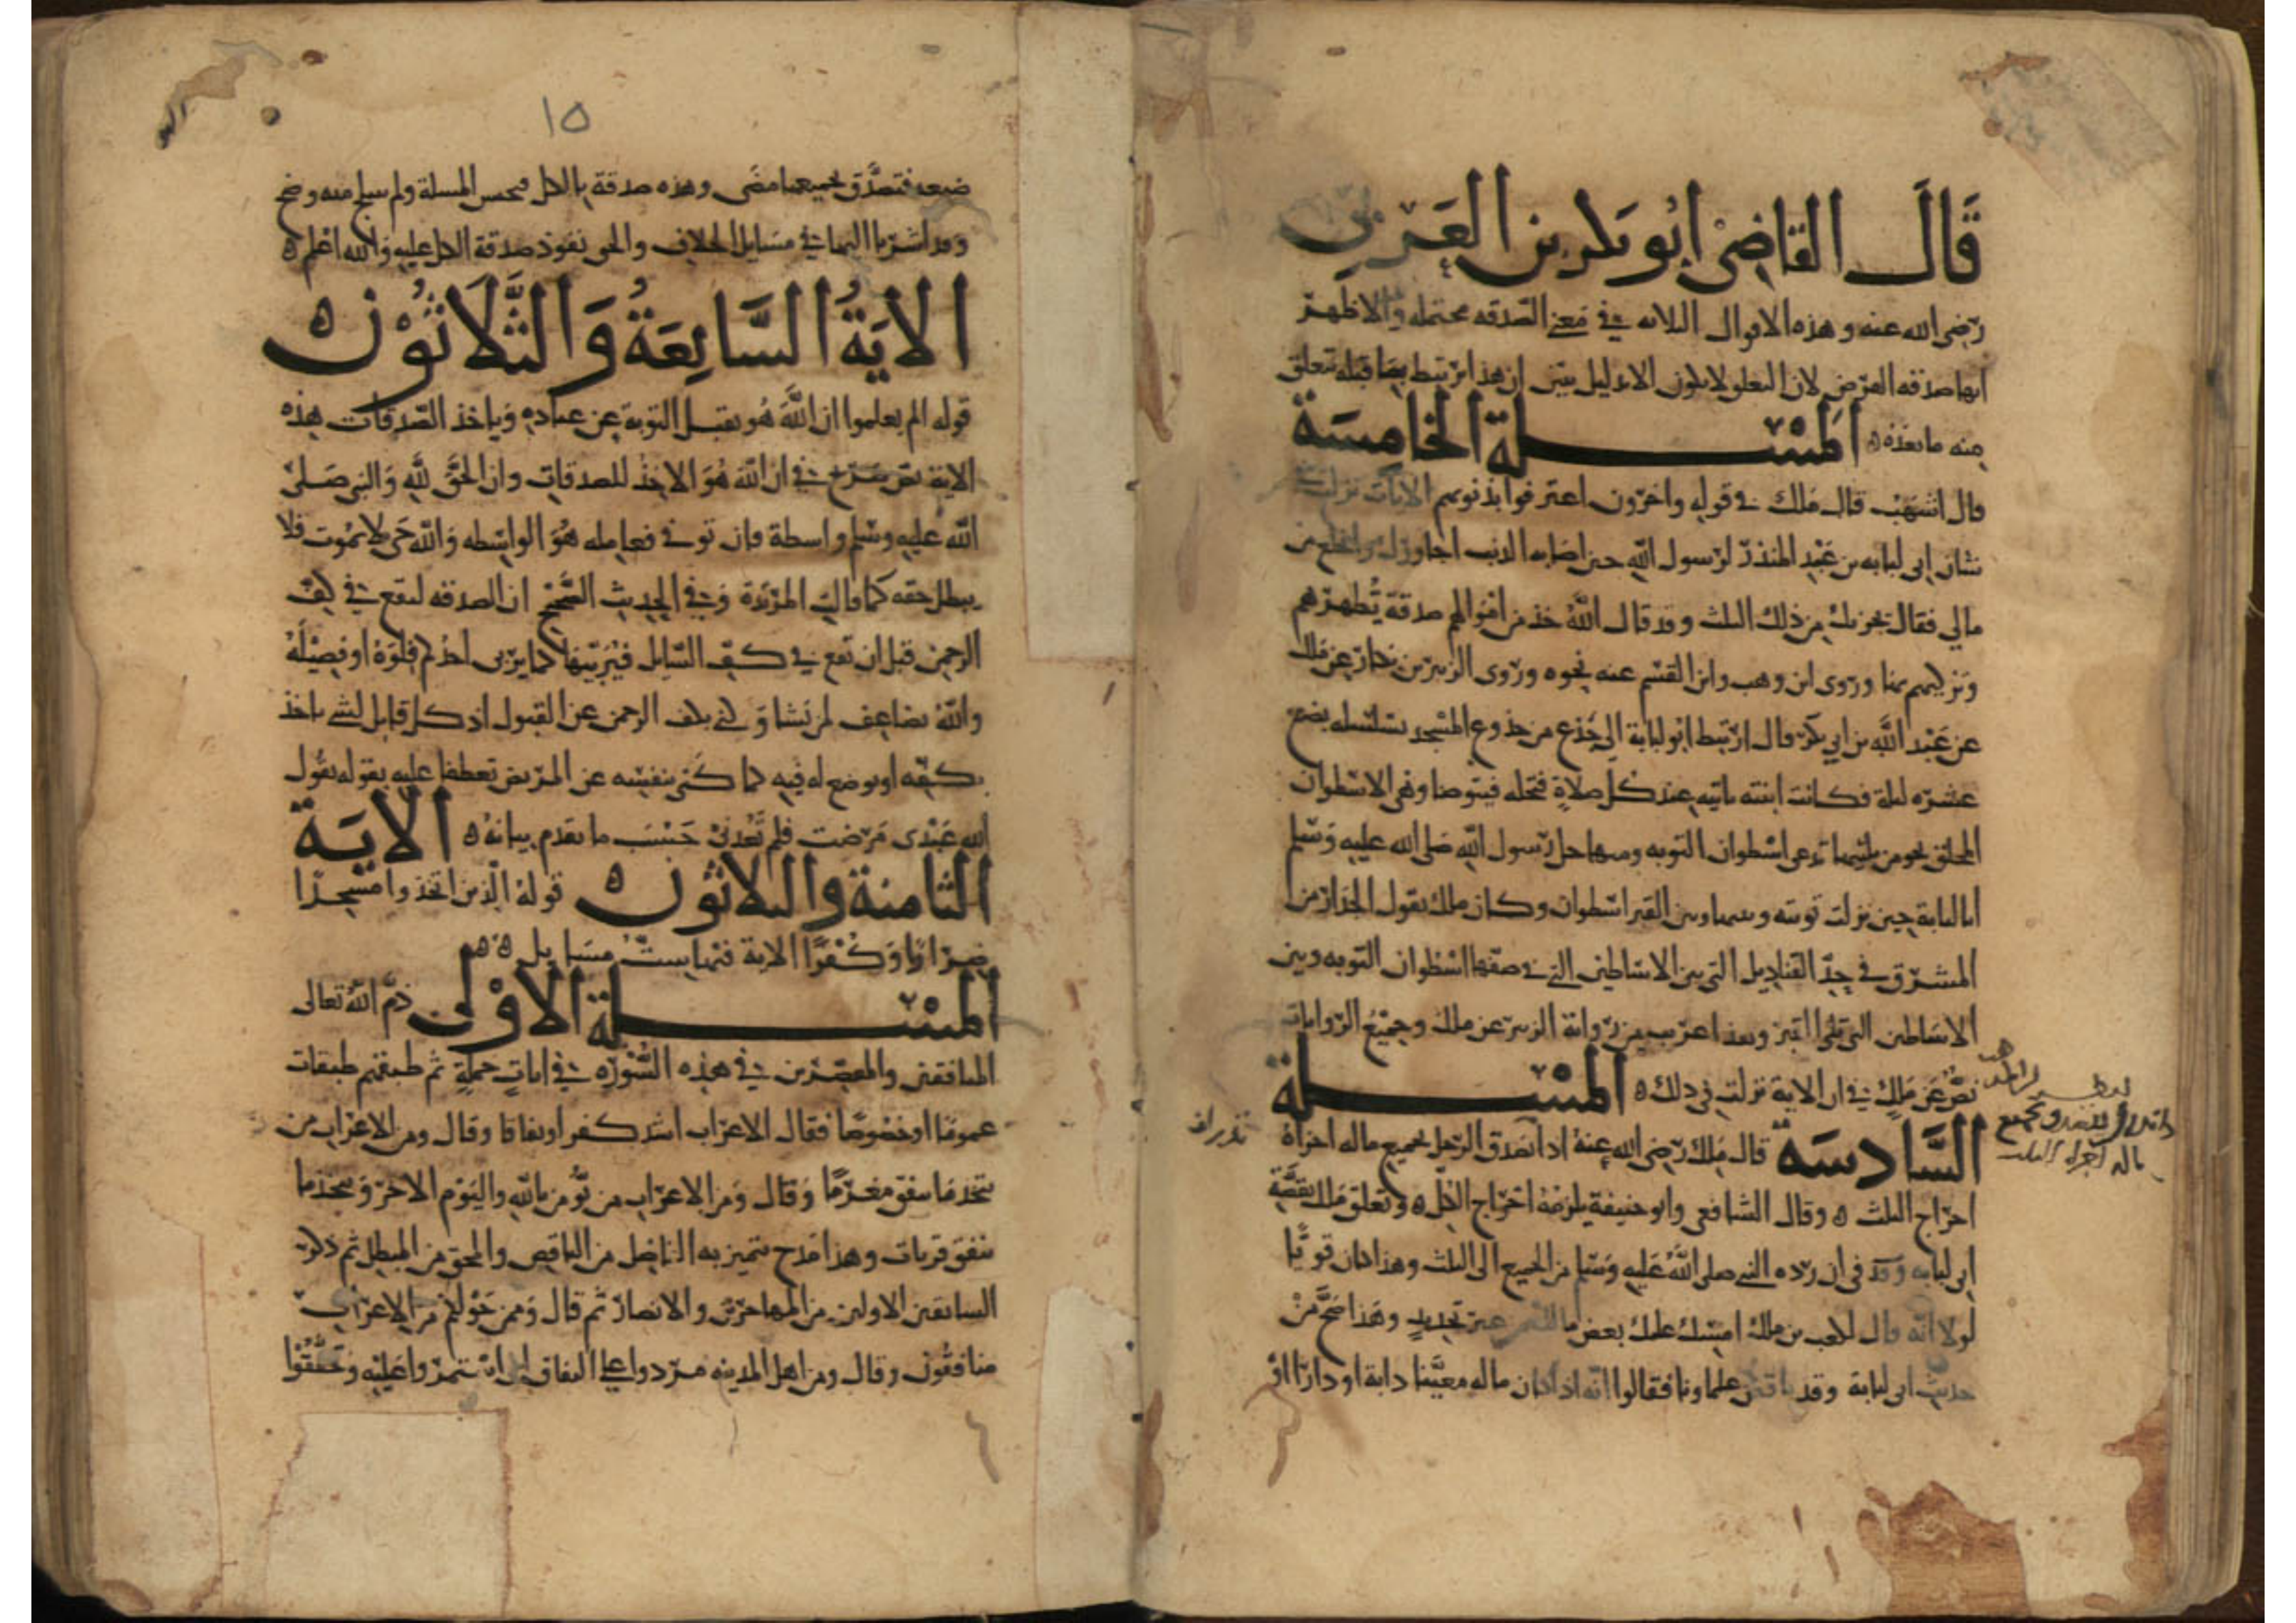 قَالَ القَاضِي ابُو بَكر بن العَرَبيّ
رَضي الله عنه وهذه الاقوال الثلاثه في مَعنى الصّدقه محتمله والاظهرُ
انها صدقه الفرض لان التعلق لا يكون الا بدليل يبين ان هذا مرتبط بما قبله متعلق
منه ما بعده ه المسْلة الخامسَة
قال اشهَبُ قال مَلك في قوله واخرون اعترفوا بذنوبهم الايات نزلت في
شان ابي لبابه بن عَبْد المنذر لرسول الله حين اصَابه الذنب اجاورك وانخلع من
مالي فقال يجزيك من ذلك الثلث وقد قال اللهُ خذ من امْوالهم صدقة تُطهرهم
وتزكيهم بها وروى ابن وهب وابن القسم عنه نحوه وروى الزبير بن بكار عن مَلك
عن عَبْد اللَّه بن ابي بكر قال ارتبط ابُو لبابة الى جذع من جذوع المسْجد بسلسله بضع
عشره ليلة فكانت ابنته تاتيه عند كل صلاةٍ فتحله فيتوضا وهي الاسطوان
المخلق نحو من ثلثيها تدعى اسْطوان التوبه ومنها حل رَسول اللّه صَلى الله عليه وَسَلم
ابا لبابة حين نزلت توبته وبينها وبين القبر اسْطوان وكان ملك يقول الجدار من
المشرق في حدّ القناديل التي بين الاساطين التي في صفها اسْطوان التوبه وبين
الاسَاطين التي تلي القبر وهذا اعرب من رواية الزبير عن ملك وجميْعُ الروايات
نصٌّ عَن مَلكٍ في ان الاية نزلت في ذلك ه المسْلة
السَّادسَة قال مَلك رَضي الله عنهُ اذا تصَدق الرّجل بجميع ماله اجزاهُ
اخراج الثلث ه وقال الشافعي وابو حنيفة يلزمهُ اخرَاج الكل ه وتعلق مَلك بقصَّة
ابي لبابه وَ في ان ردّه النبي صلى اللَّهُ عَليه وَسَلم من الجميع الى الثلث وهذا كان قويًّا
لولا انّه قال لكعب بن ملك امْسك عليك بعض مالك من غير تحديدٍ وهَذا اصَحُّ منْ
حديث ابي لبابة وقد ناقض علماونا فقالوا انّه اذا كان ماله معيَّنا دابة او دارًا اوْ
ماله اجزاه الثلث
١٥
ضيعه فتصَدَّق بجميعها مضَى وهذه صدقة بالكل ولم
وقد اشرنا اليها في مسَايل الخلاف والحق نفوذ صدقة الكل عليه وَالله اعْلم ه
الايَةُ السَّابِعَةُ وَالثَّلاَثُوْنَ ه
قوله الم يعلموا ان اللَّهَ هُو يقبل التوبة عن عباده وَياخذ الصّدقات هذه
الاية نصّ صَرح في ان اللّهَ هُوَ الاخِذُ للصدقات وان الحَقَّ للَّهِ وَالنبي صَلّى
اللَّهُ عَليه وسَلم واسطة فان توفي فعامله هُوَ الواسطه وَاللَّه حَيّ لا يمُوت فلا
يبطل حقه كما قالت المرتدة وَفي الحديث الصَّحيْح ان الصدقه لتقع في كفّ
الرحمن قبل ان تقع في كفّ السّايل فيُرَبّيهَا كما يُرَبّي احَدكم فِلوَهُ او فصِيْلَهُ
واللَّهُ يضَاعِف لمن يَشا وَ كني بكف الرحمن عن القبول اذ كل قابل لشي ياخذ
بكفه او يوضع له فيه كما كنى بنفسه عن المريض تعطفا عليه بقوله يقول
الله عَبْدي مَرضت فلم تَعُدني حَسْبَ ما تقدم بيانهُ ه الايَةُ
الثامنة والثلاثون ه قوله الّذين اتخذوا مسْجدًا
ضِرَارًا وَكُفْرًا الاية فيها ستُّ مسَايل ه ه
المسْلة الاوْلى ذمَّ اللَّهُ تعَالى
المنافقين والمقصّرين في هذه السُّوْرَه في اياتٍ جملةٍ ثم طبقهم طبقات
عمومًا او خصُوصًا فقال الاعْرَاب اشد كفرا ونفاقا وقال ومن الاعْرَاب من
يتخذ مَا ينفق مغرمًا وَقال وَمن الاعرَاب من يُّؤمن باللَّهِ واليَوْم الاخر وَيتخذ ما
ينفق قربات وهذا مَدح يتميز به الفاضل من الناقص والمحق من المبطل ثم ذكر
السابقين الاولين من المهاجرين والانصار ثم قال وَممن حَوْلكم من الاعرَاب
منافقُون وقال ومن اهل المدينه مَردوا على النفاق اي اسْتمرّوا عَليْه وَتحققُوا